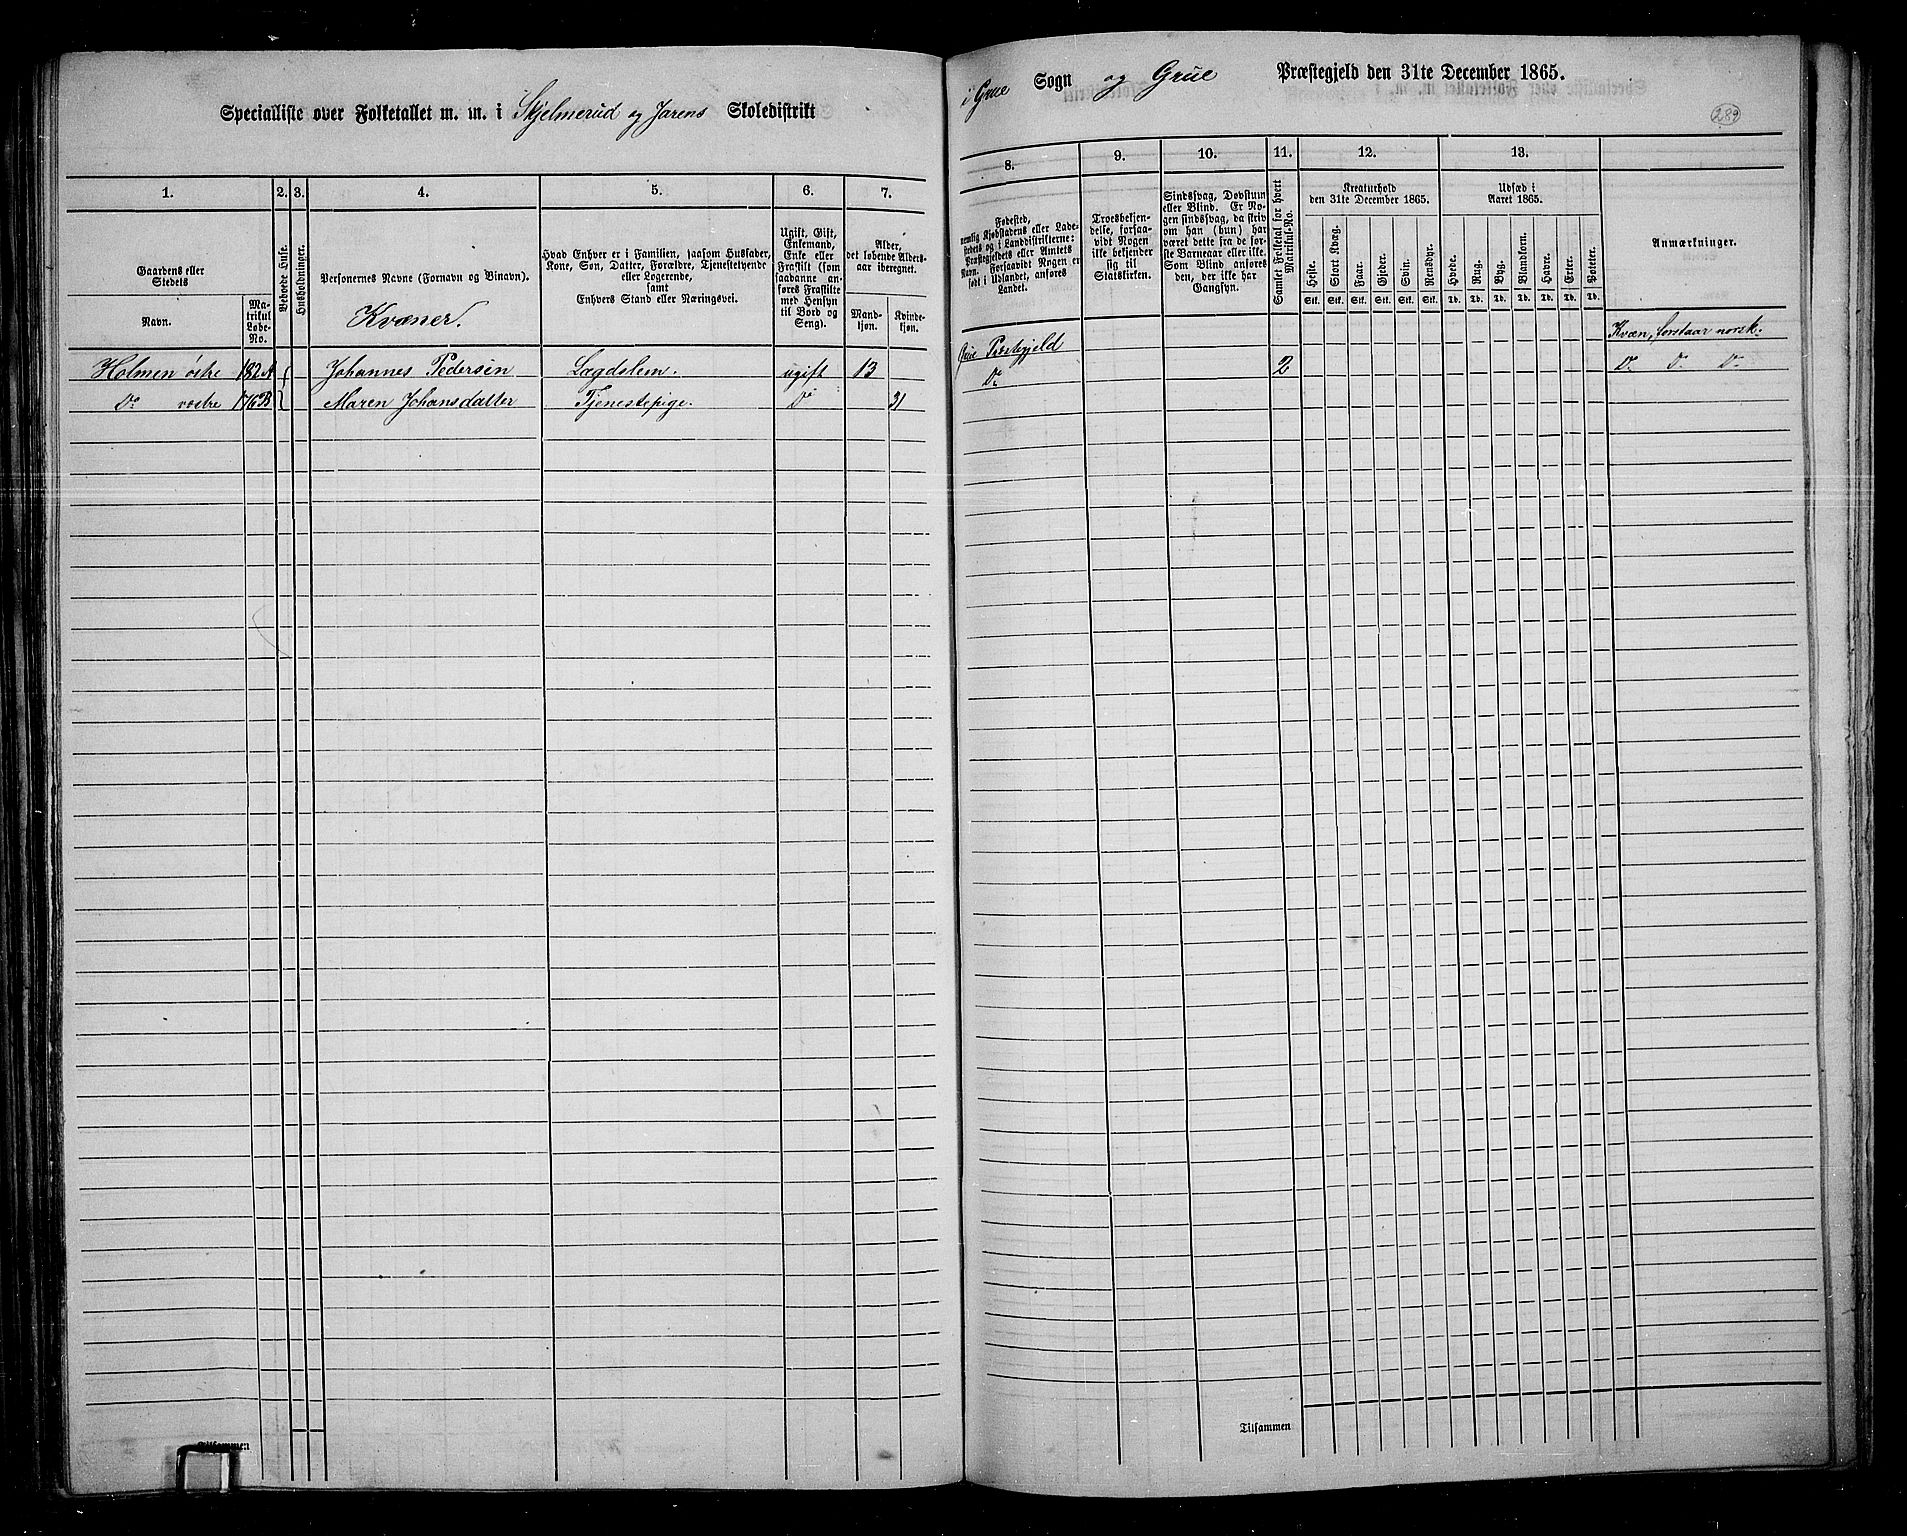 Specialliste over Folketallet m. m. i Skjelmerud og Jarens Skoledistrikt
i Grue Sogn og Grue Præstegjeld den 31te December 1865.
289
1. 2. 3. 4. 5. 6. 7.
Gaardens eller
Stedets
Navn.
Ma-
trikul
Løbe-
No.
Beboede Huse.
Husholdninger.
Personernes Navne (Fornavn og Binavn).
Kvæner.
Hvad Enhver er i Familien, saasom Husfader,
Kone, Søn, Datter, Forældre, Tjenestetyende
eller Logerende,
samt
Enhvers Stand eller Næringsvei.
Ugift, Gift,
Enkemand,
Enke eller
Fraskilt (som
saadanne an-
føres Fraskilte
med Hensyn
til Bord og
Seng).
Alder,
det løbende Alders-
aar iberegnet.
Mand-
kjøn.
Kvinde-
kjøn.
Holmen østre 182A Johannes Pedersen Lægdslem. ugift 13
Do vestre 176B Maren Johansdatter Tjenestepige. Do 31
Tilsammen
8. 9. 10. 11. 12. 13.
Fødested,
nemlig Kjøbstadens eller Lade-
stedets og i Landdistrikterne:
Præstegjeldets eller Amtets
Navn. Forsaavidt Nogen er
født i Udlandet, anføres
Landet.
Troesbekjen-
delse, forsaa-
vidt Nogen
ikke bekjender
sig til
Statskirken.
Sindssvag, Døvstum
eller Blind. Er No-
gen sindssvag, da skriv
om han (hun) har
været dette fra de før-
ste Barneaar eller ikke.
Som Blind anføres
den, der ikke har
Gangsyn.
Samlet Folketal for hvert
Matrikul-No.
Kreaturhold
den 31te December 1865.
Heste. Stort Kvæg. Faar. Gjeder. Svin. Rensdyr.
Stk. Stk. Stk. Stk. Stk. Stk.
Udsæd i
Aaret 1865.
Hvede. Rug. Byg. Blandkorn. Havre. Erter. Poteter.
Td. Td. Td. Td. Td. Td. Td.
Anmærkninger.
Grue Præstegjeld Kvæn, forstaar norsk.
Do 2 Do Do Do
Tilsammen